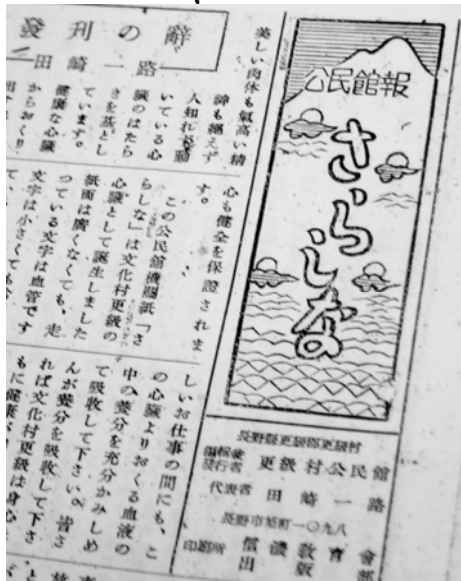 公民館報
さらしな
長野縣更級郡更級村
編輯兼發行者 更級村公民館
代表者 田崎一路
長野市旭町一〇九八
印刷所 信濃教育會出版部
發刊の辭
田崎一路
美しい肉体も氣高い精
神も絕えず
人知れず動
いている心
臓のはたら
きを基とし
ています。
健康な心臓
からおくり
心も健全を保證されま
す。
この公民館機關紙「さ
らしな」は文化村更級の
心臓として誕生しました
紙面は廣くなくても、走
っている文字は血管です
文字は小さくても
て、
しいお仕事の間にも、こ
の心臓よりおくる血液の
中の養分を充分かみしめ
て吸收して下さい。皆さ
んが養分を吸收して下さ
れば文化村更級は身心と
もに健康が